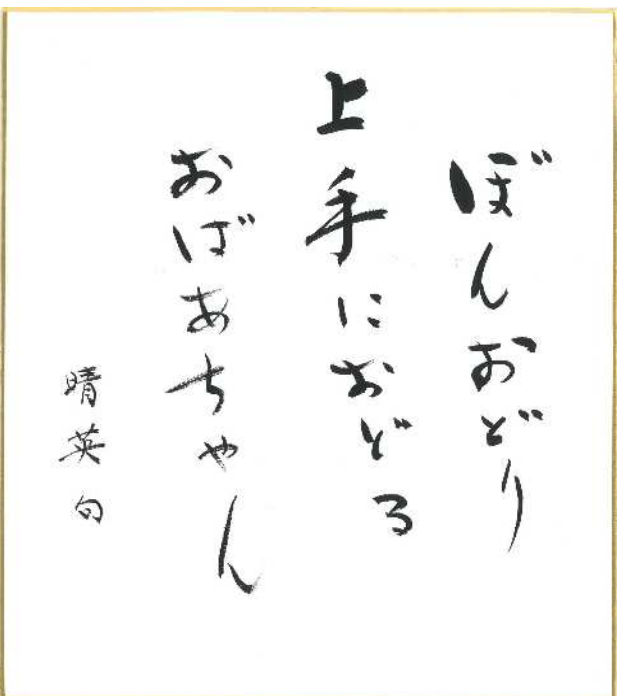 ぼんおどり
上手におどる
おばあちゃん
晴英句